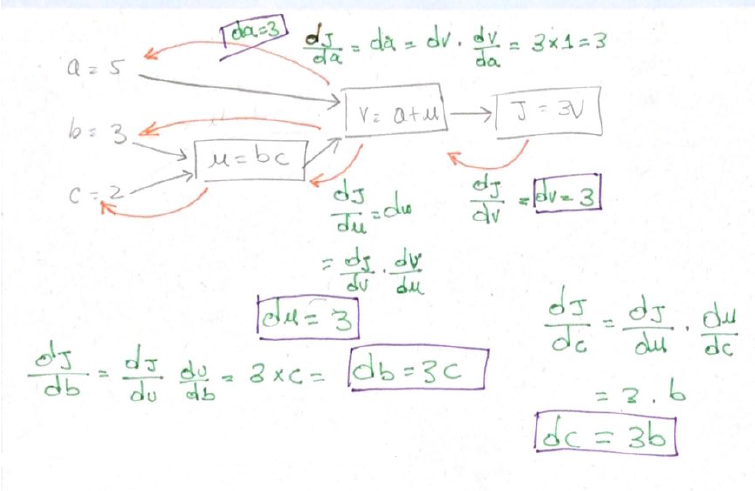 da=3
dJ/da = da = dv · dv/da = 3×1=3
a = 5
v = a+u
J = 3v
b = 3
u = bc
c = 2
dJ/du = du
= dJ/dv · dv/du
du = 3
dJ/dv = dv = 3
dJ/db = dJ/du du/db = 3×c = db = 3c
dJ/dc = dJ/du · du/dc
= 3 . b
dc = 3b